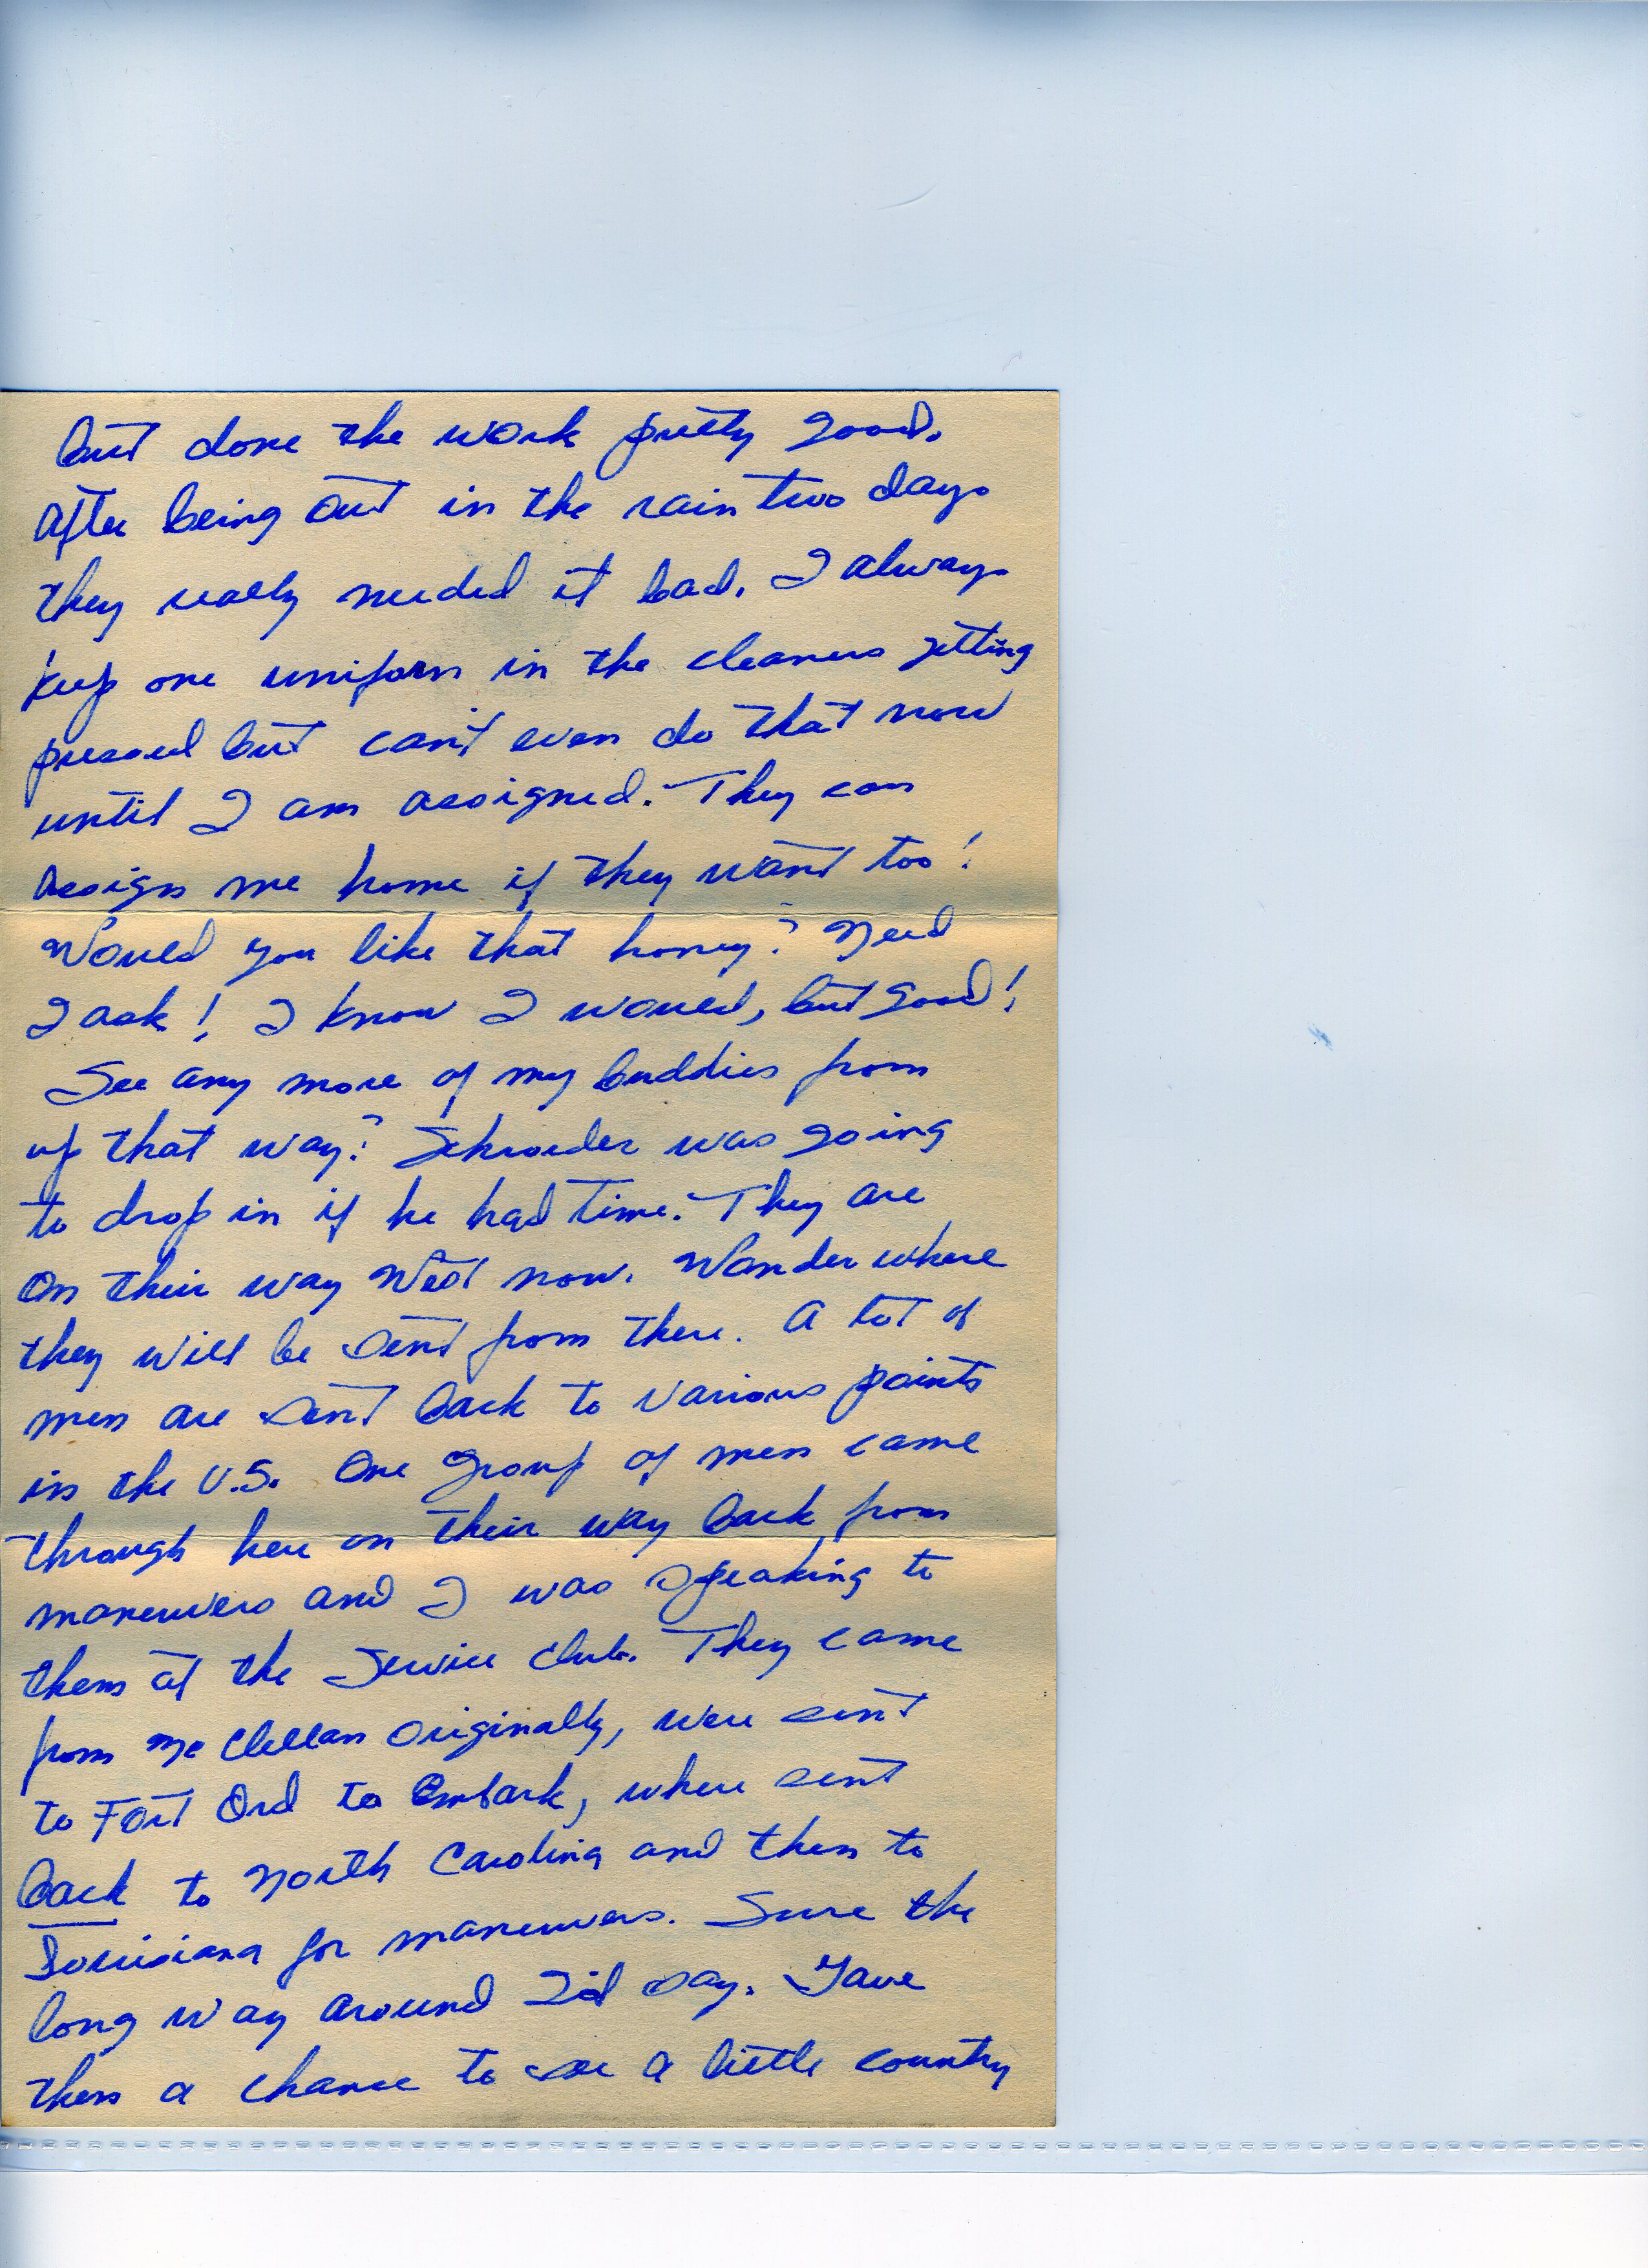 but done the work pretty good.
After being out in the rain two days
they really needed it bad. I always
keep one uniform in the cleaners getting
pressed but can't even do that now
until I am assigned. They can
assign me home if they want too!
Would you like that honey? Need
I ask! I know I would, but good!
See any more of my buddies from
up that way? Schroeder was going
to drop in if he had time. They are
on their way West now. Wonder where
they will be sent from there. A lot of
men are sent back to various points
in the U.S. One group of men came
through here on their way back from
maneuvers and I was speaking to
them at the Service Club. They came
from McClellan originally, were sent
to Fort Ord to embark, where sent
back to North Carolina and then to
Louisiana for maneuvers. Sure the
long way around I'd say. Gave
them a chance to see a little country